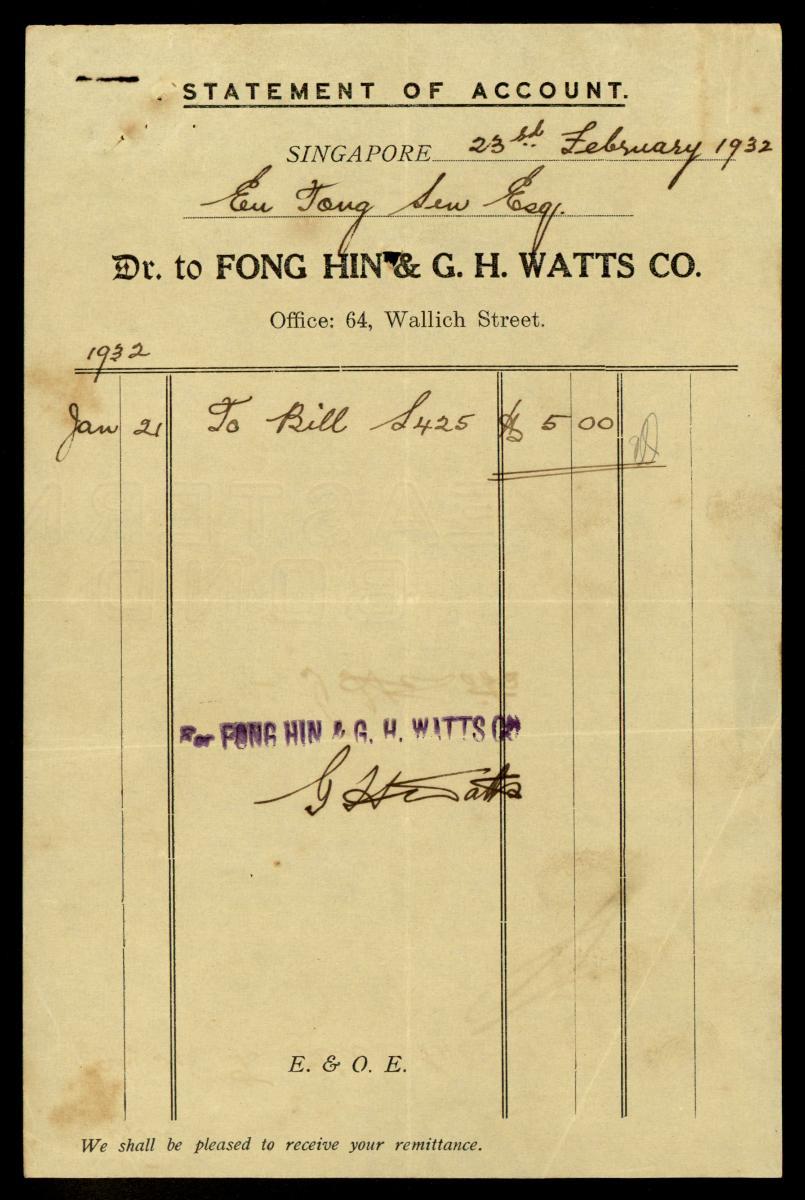 STATEMENT OF ACCOUNT.
SINGAPORE 23rd February 1932
Eu Tong Sen Esq.
Dr. to FONG HIN & G. H. WATTS CO.
Office: 64, Wallich Street.
1932
Jan 21 To Bill S425 $ 5 00
EASTERN
BOND
For FONG HIN & G. H. WATTS Co
G H Watts
E. & O. E.
We shall be pleased to receive your remittance.